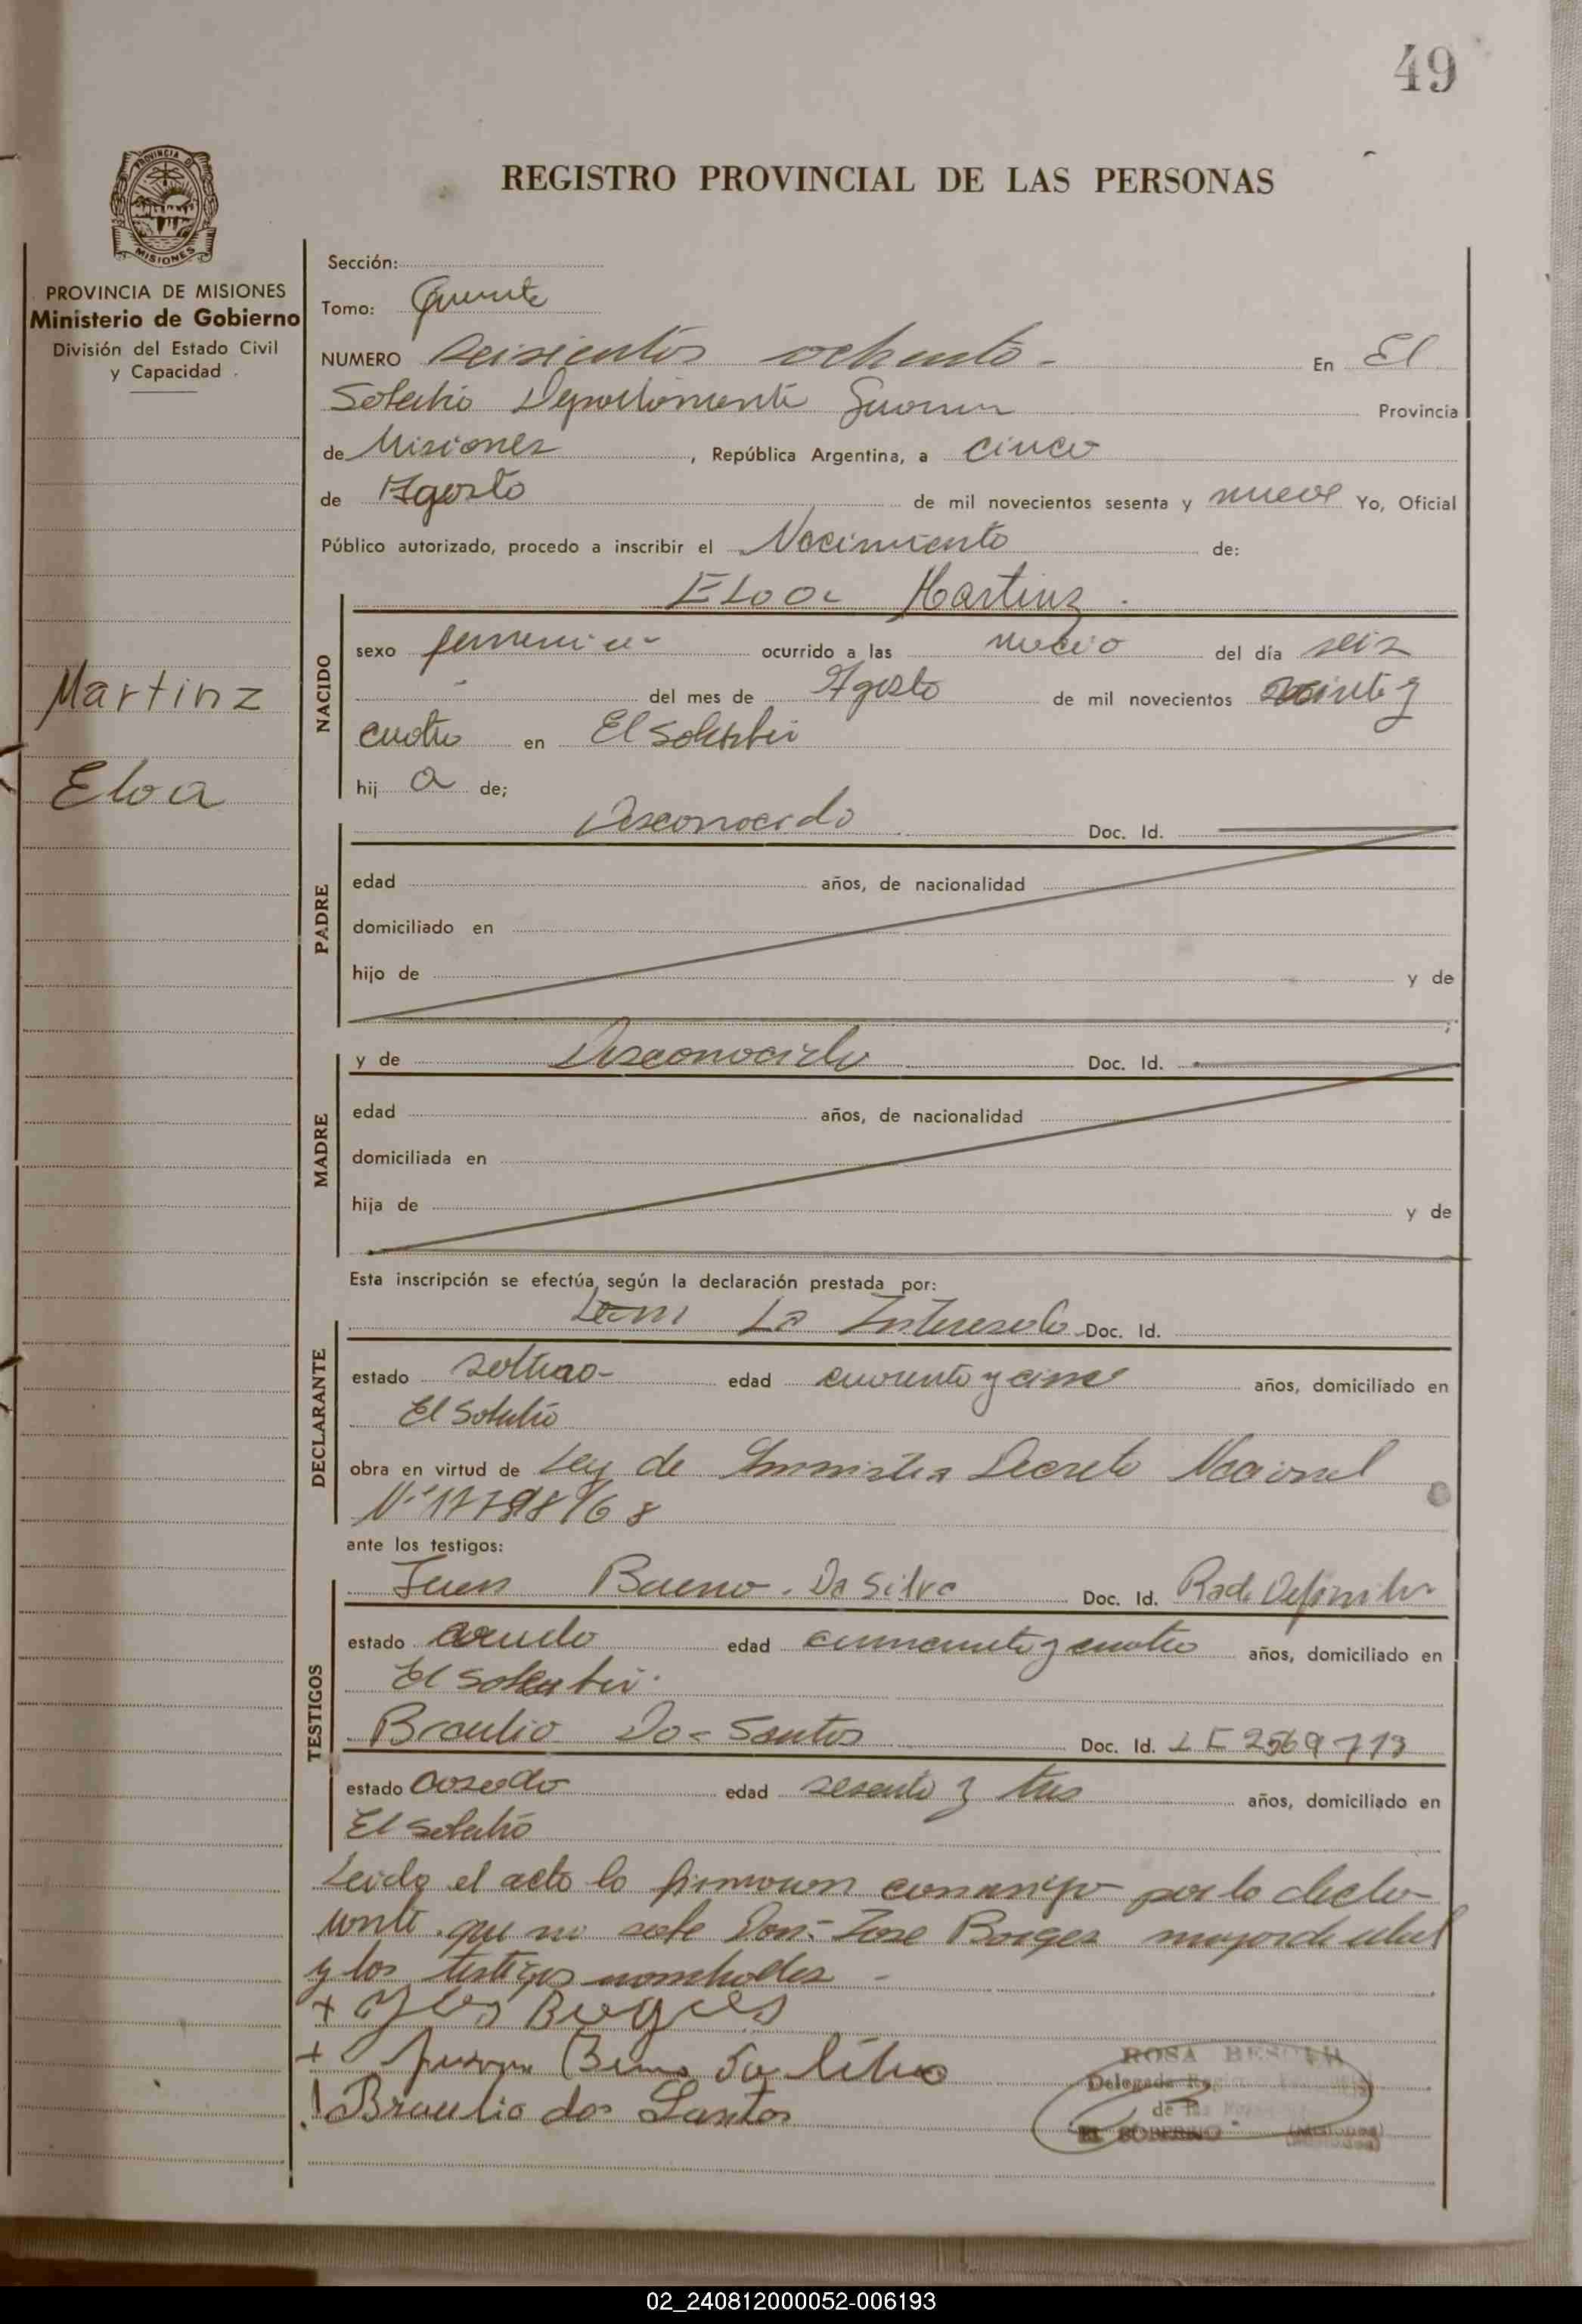 49
PROVINCIA DE MISIONES
REGISTRO PROVINCIAL DE LAS PERSONAS
PROVINCIA DE MISIONES
Ministerio de Gobierno
División del Estado Civil
y Capacidad
Martinz
Eloa
Sección:
Tomo:
NUMERO seisientos ochenta - En El
Soberbio Departamento Provincia
de Misiones, República Argentina, a cinco
de Agosto de mil novecientos sesenta y nueve Yo, Oficial
Público autorizado, procedo a inscribir el Nacimiento de:
Eloa Martinz
NACIDO
sexo femenino ocurrido a las del día seis
- del mes de Agosto de mil novecientos veinte y
cuatro en El Soberbio
hij a de;
PADRE
Desconocido Doc. Id.
edad años, de nacionalidad
domiciliado en
hijo de y de
;
MADRE
y de Desconocido Doc. Id.
edad años, de nacionalidad
domiciliada en
hija de y de
Esta inscripción se efectúa, según la declaración prestada por:
DECLARANTE
La Interesada Doc. Id.
estado soltera - edad cuarenta y cinco años, domiciliado en
El Soberbio
obra en virtud de Ley de Decreto Nacional
ante los testigos:
TESTIGOS
Juan Bueno Da Silva Doc. Id. Rad. Definitiva
estado edad cincuenta y cuatro años, domiciliado en
El Soberbio
Braulio Dos Santos Doc. Id. L E 2569713
estado casado edad sesenta y tres años, domiciliado en
El Soberbio
Leida el acta la firmaron conmigo por la decla
rante que no sabe Don Jose Borges mayor de edad
y los testigos nombrados -
+ Borges
+ Da Silva
Braulio dos Santos
ROSA
Delegada
de las
EL SOBERBIO (Misiones)
02_240812000052-006193